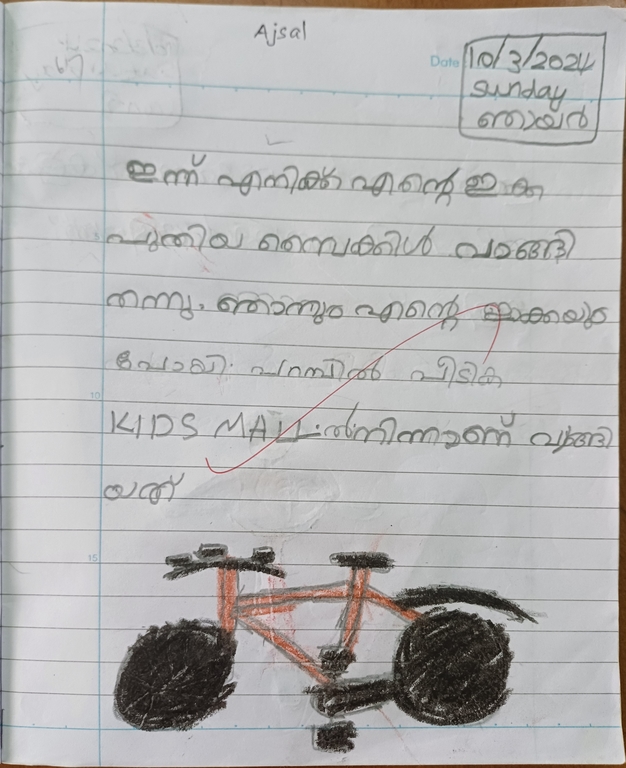 Ajsal
Date 10/3/2024
sunday
ഞായർ
ഇന്ന് എനിക്ക് എന്റെ ഇക്ക
പുതിയ സൈക്കിൾ വാങ്ങി
തന്നു. ഞാനും എന്റെ ഇക്കയും
പോയി. പറമ്പിൽ പീടിക
10
KIDS MALL.ൽനിന്നാണ് വാങ്ങി
യത്
15